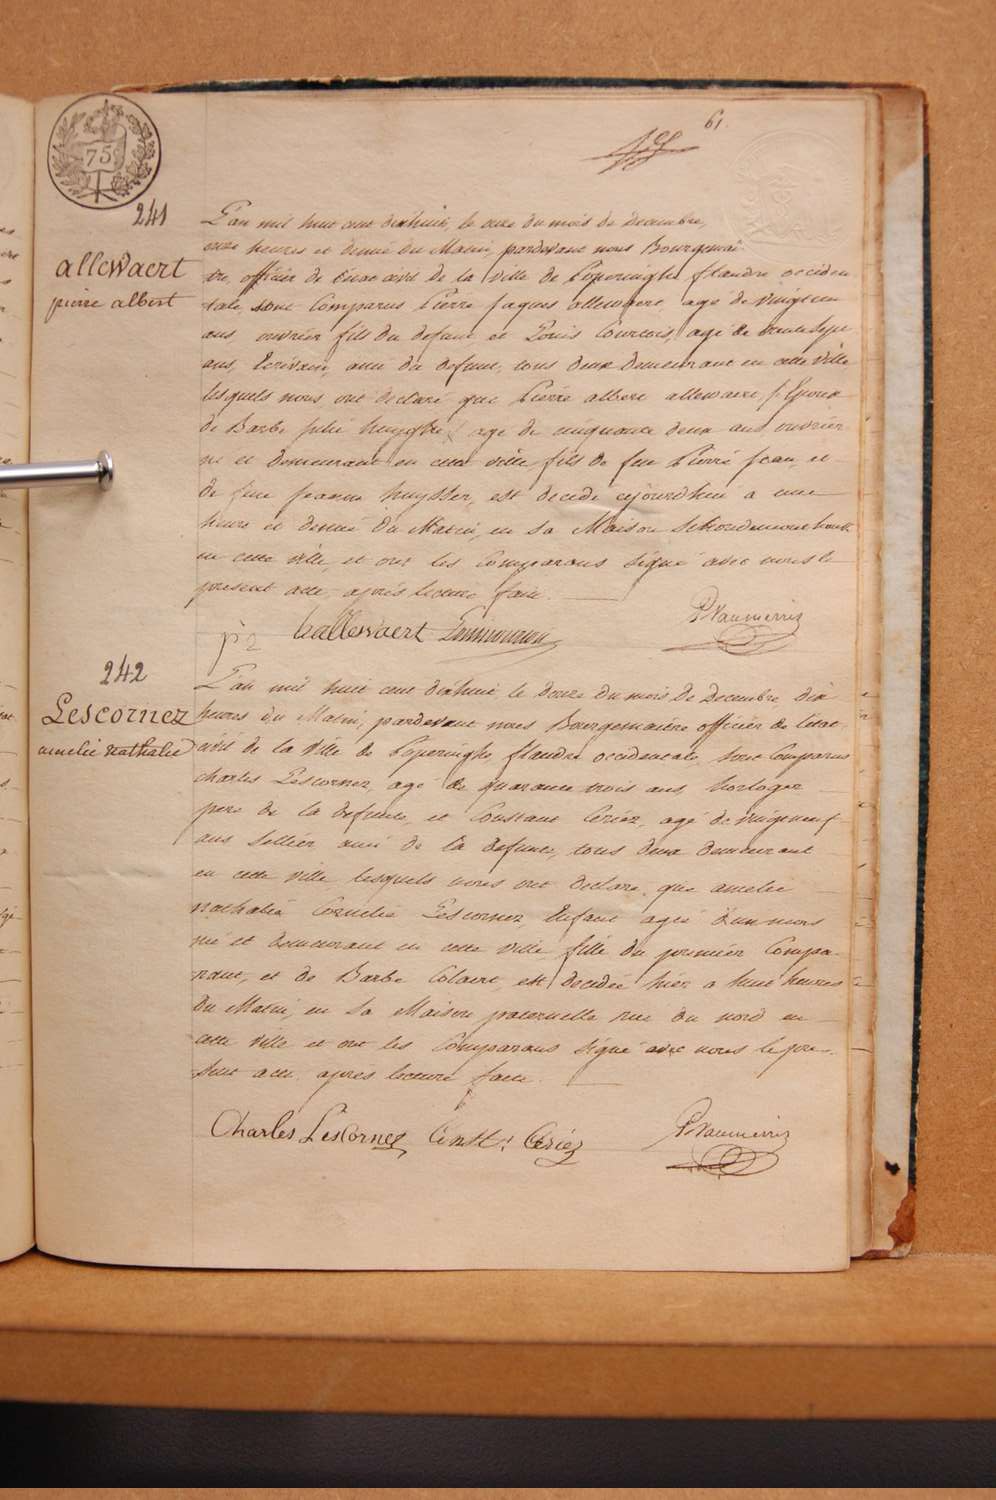 61.
75
241
allewaert
pierre albert
L'an mil huit cent dixhuit, le onze du mois de Decembre,
onze heures et demie du Matin, pardevant nous Bourgemai
tre, officier de l'état civil de la ville de Poperinghe, flandre occiden
tale, sont Comparus Pierre Jaques allewaert, agé de vingt
ans, ouvrier fils du defunt, et Louis Courtois, agé de trente sept
ans, Ecrivain, ami du defunt, tous deux demeurant en cette ville
lesquels nous ont declaré que Pierre albert allewaert, Epoux
de Barbe Huyghe, agé de cinquante deux ans ouvrier
né et demeurant en cette ville fils de feu Pierre Jean, et
de feue Jeanne est decedé cejourd'hui a une
heure et demie du Matin, en sa Maison
en cette ville, et ont les Comparans signé avec nous le
present acte, après lecture faite.
allewaert
242
Lescornez
amelie nathalie
L'an mil huit cent dixhuit, le douze du mois de Decembre, dix
heures du Matin, pardevant nous Bourgemaitre officier de l'état
civil de la ville de Poperinghe, flandre occidentale, sont Comparus
charles Lescornez, agé de quarante trois ans, horloger
pere de la defunte, et Constant Cériez, agé de vingtneuf
ans Sellier ami de la defunte, tous deux demeurant
en cette ville lesquels nous ont declaré, que amelie
nathalie Cornelie Lescornez, Enfant agée d'un mois
né et demeurant en cette ville fille du premier Compa-
rant, et de Barbe Colaert, est decedée hier a huit heures
du Matin, en sa Maison paternelle rue du nord en
cette ville et ont les Comparans signé avec nous le pre-
sent acte, après lecture faite.
Charles LesCornez Const. Cériez